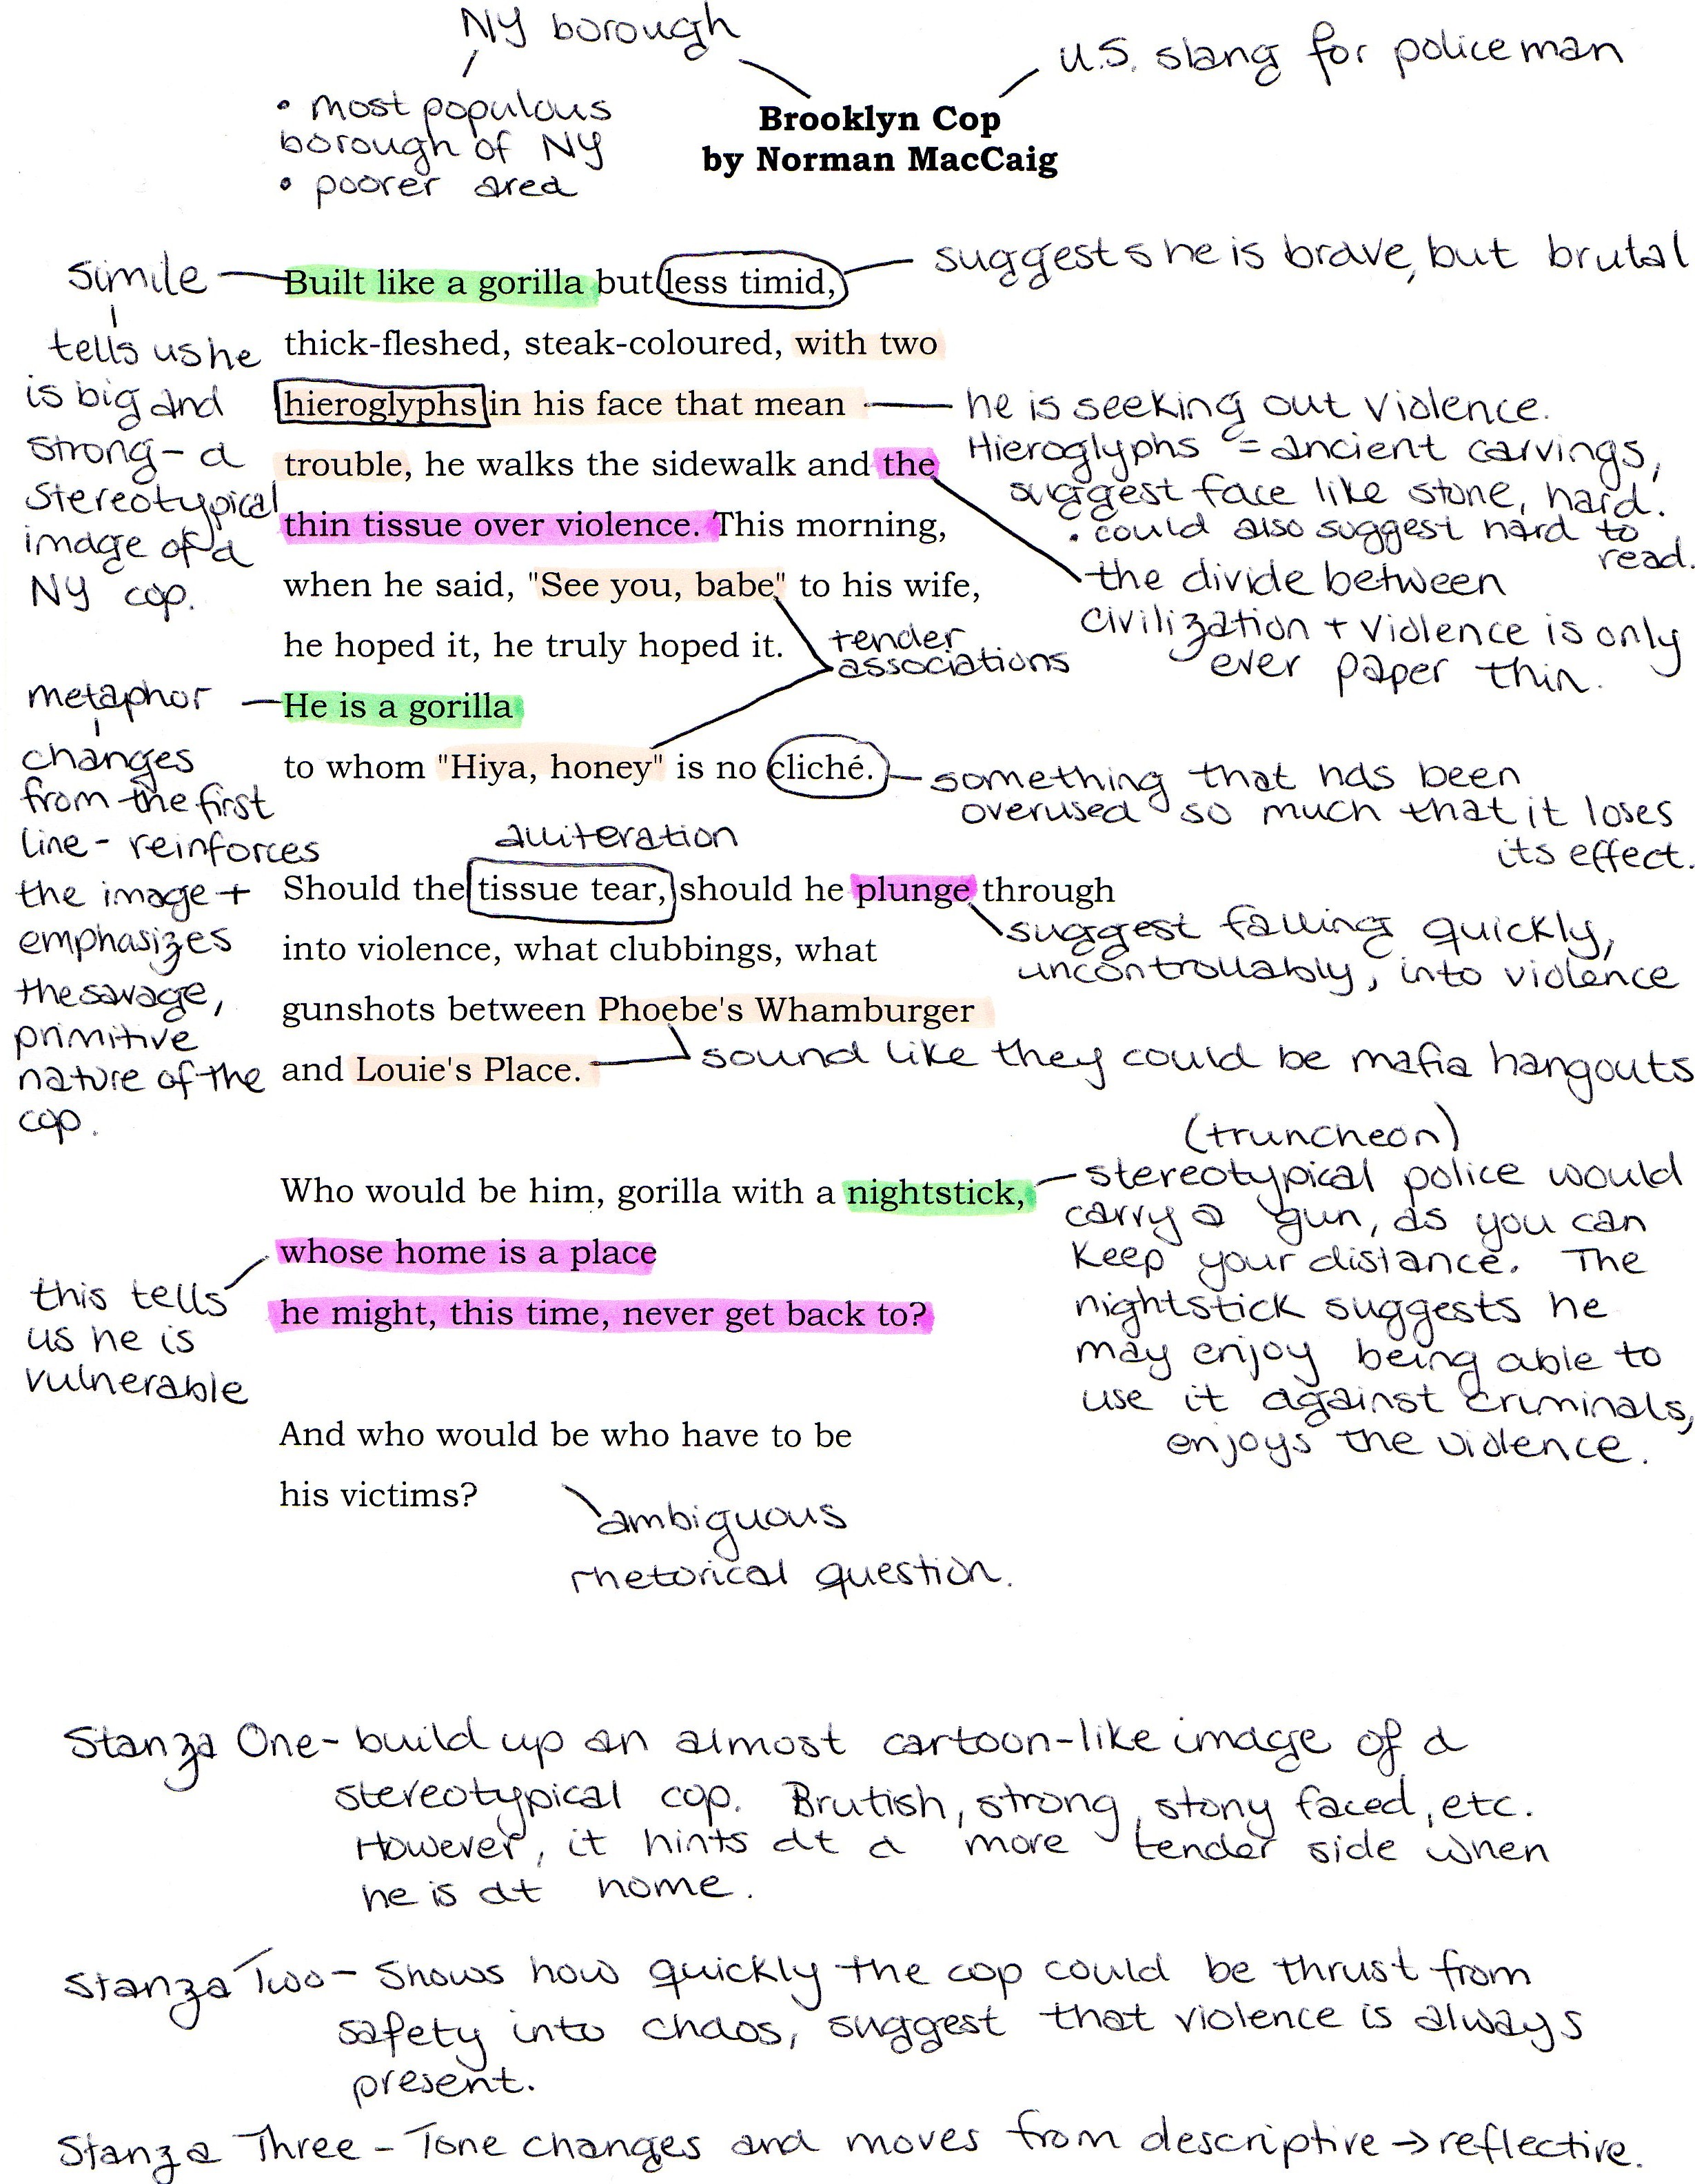 NY borough
U.S. slang for policeman
• most populous
borough of NY
• poorer area
Brooklyn Cop
by Norman MacCaig
simile
suggests he is brave, but brutal
Built like a gorilla but less timid,
thick-fleshed, steak-coloured, with two
hieroglyphs in his face that mean
trouble, he walks the sidewalk and the
thin tissue over violence. This morning,
when he said, "See you, babe" to his wife,
he hoped it, he truly hoped it.
He is a gorilla
to whom "Hiya, honey" is no cliché.
tells us he
is big and
strong - a
stereotypical
image of a
NY cop.
he is seeking out violence.
Hieroglyphs = ancient carvings,
suggest face like stone, hard.
• could also suggest hard to
read.
the divide between
civilization + violence is only
ever paper thin.
tender
associations
metaphor
changes
from the first
line - reinforces
the image +
emphasizes
the savage,
primitive
nature of the
cop.
something that has been
overused so much that it loses
its effect.
alliteration
Should the tissue tear, should he plunge through
into violence, what clubbings, what
gunshots between Phoebe's Whamburger
and Louie's Place.
suggest falling quickly,
uncontrollably, into violence
sound like they could be mafia hangouts
Who would be him, gorilla with a nightstick,
whose home is a place
he might, this time, never get back to?
(truncheon)
stereotypical police would
carry a gun, as you can
keep your distance. The
nightstick suggests he
may enjoy being able to
use it against criminals,
enjoys the violence.
this tells
us he is
vulnerable
And who would be who have to be
his victims?
ambiguous
rhetorical question.
Stanza One - build up an almost cartoon-like image of a
stereotypical cop. Brutish, strong, stony faced, etc.
However, it hints at a more tender side when
he is at home.
Stanza Two - Shows how quickly the cop could be thrust from
safety into chaos, suggest that violence is always
present.
Stanza Three - Tone changes and moves from descriptive → reflective.